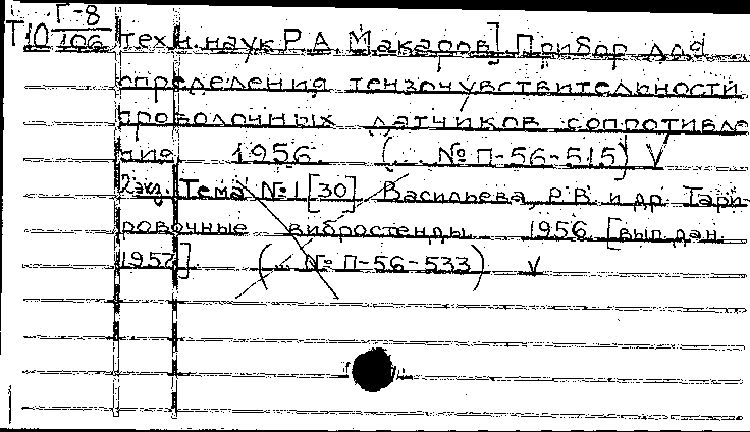 Т10 Г-8/106 техн. наук Р.А. Макаров]. Прибор для
определения тензочувствительности
проволочных датчиков сопротивле
ние. 1956. (... № П-56-515) V
2 экз. Тема № 1 [30] Васильева, Р.В. и др. Тари
ровочные вибростенды. 1956. [вып. дан.
1957]. (... № П-56-533) V